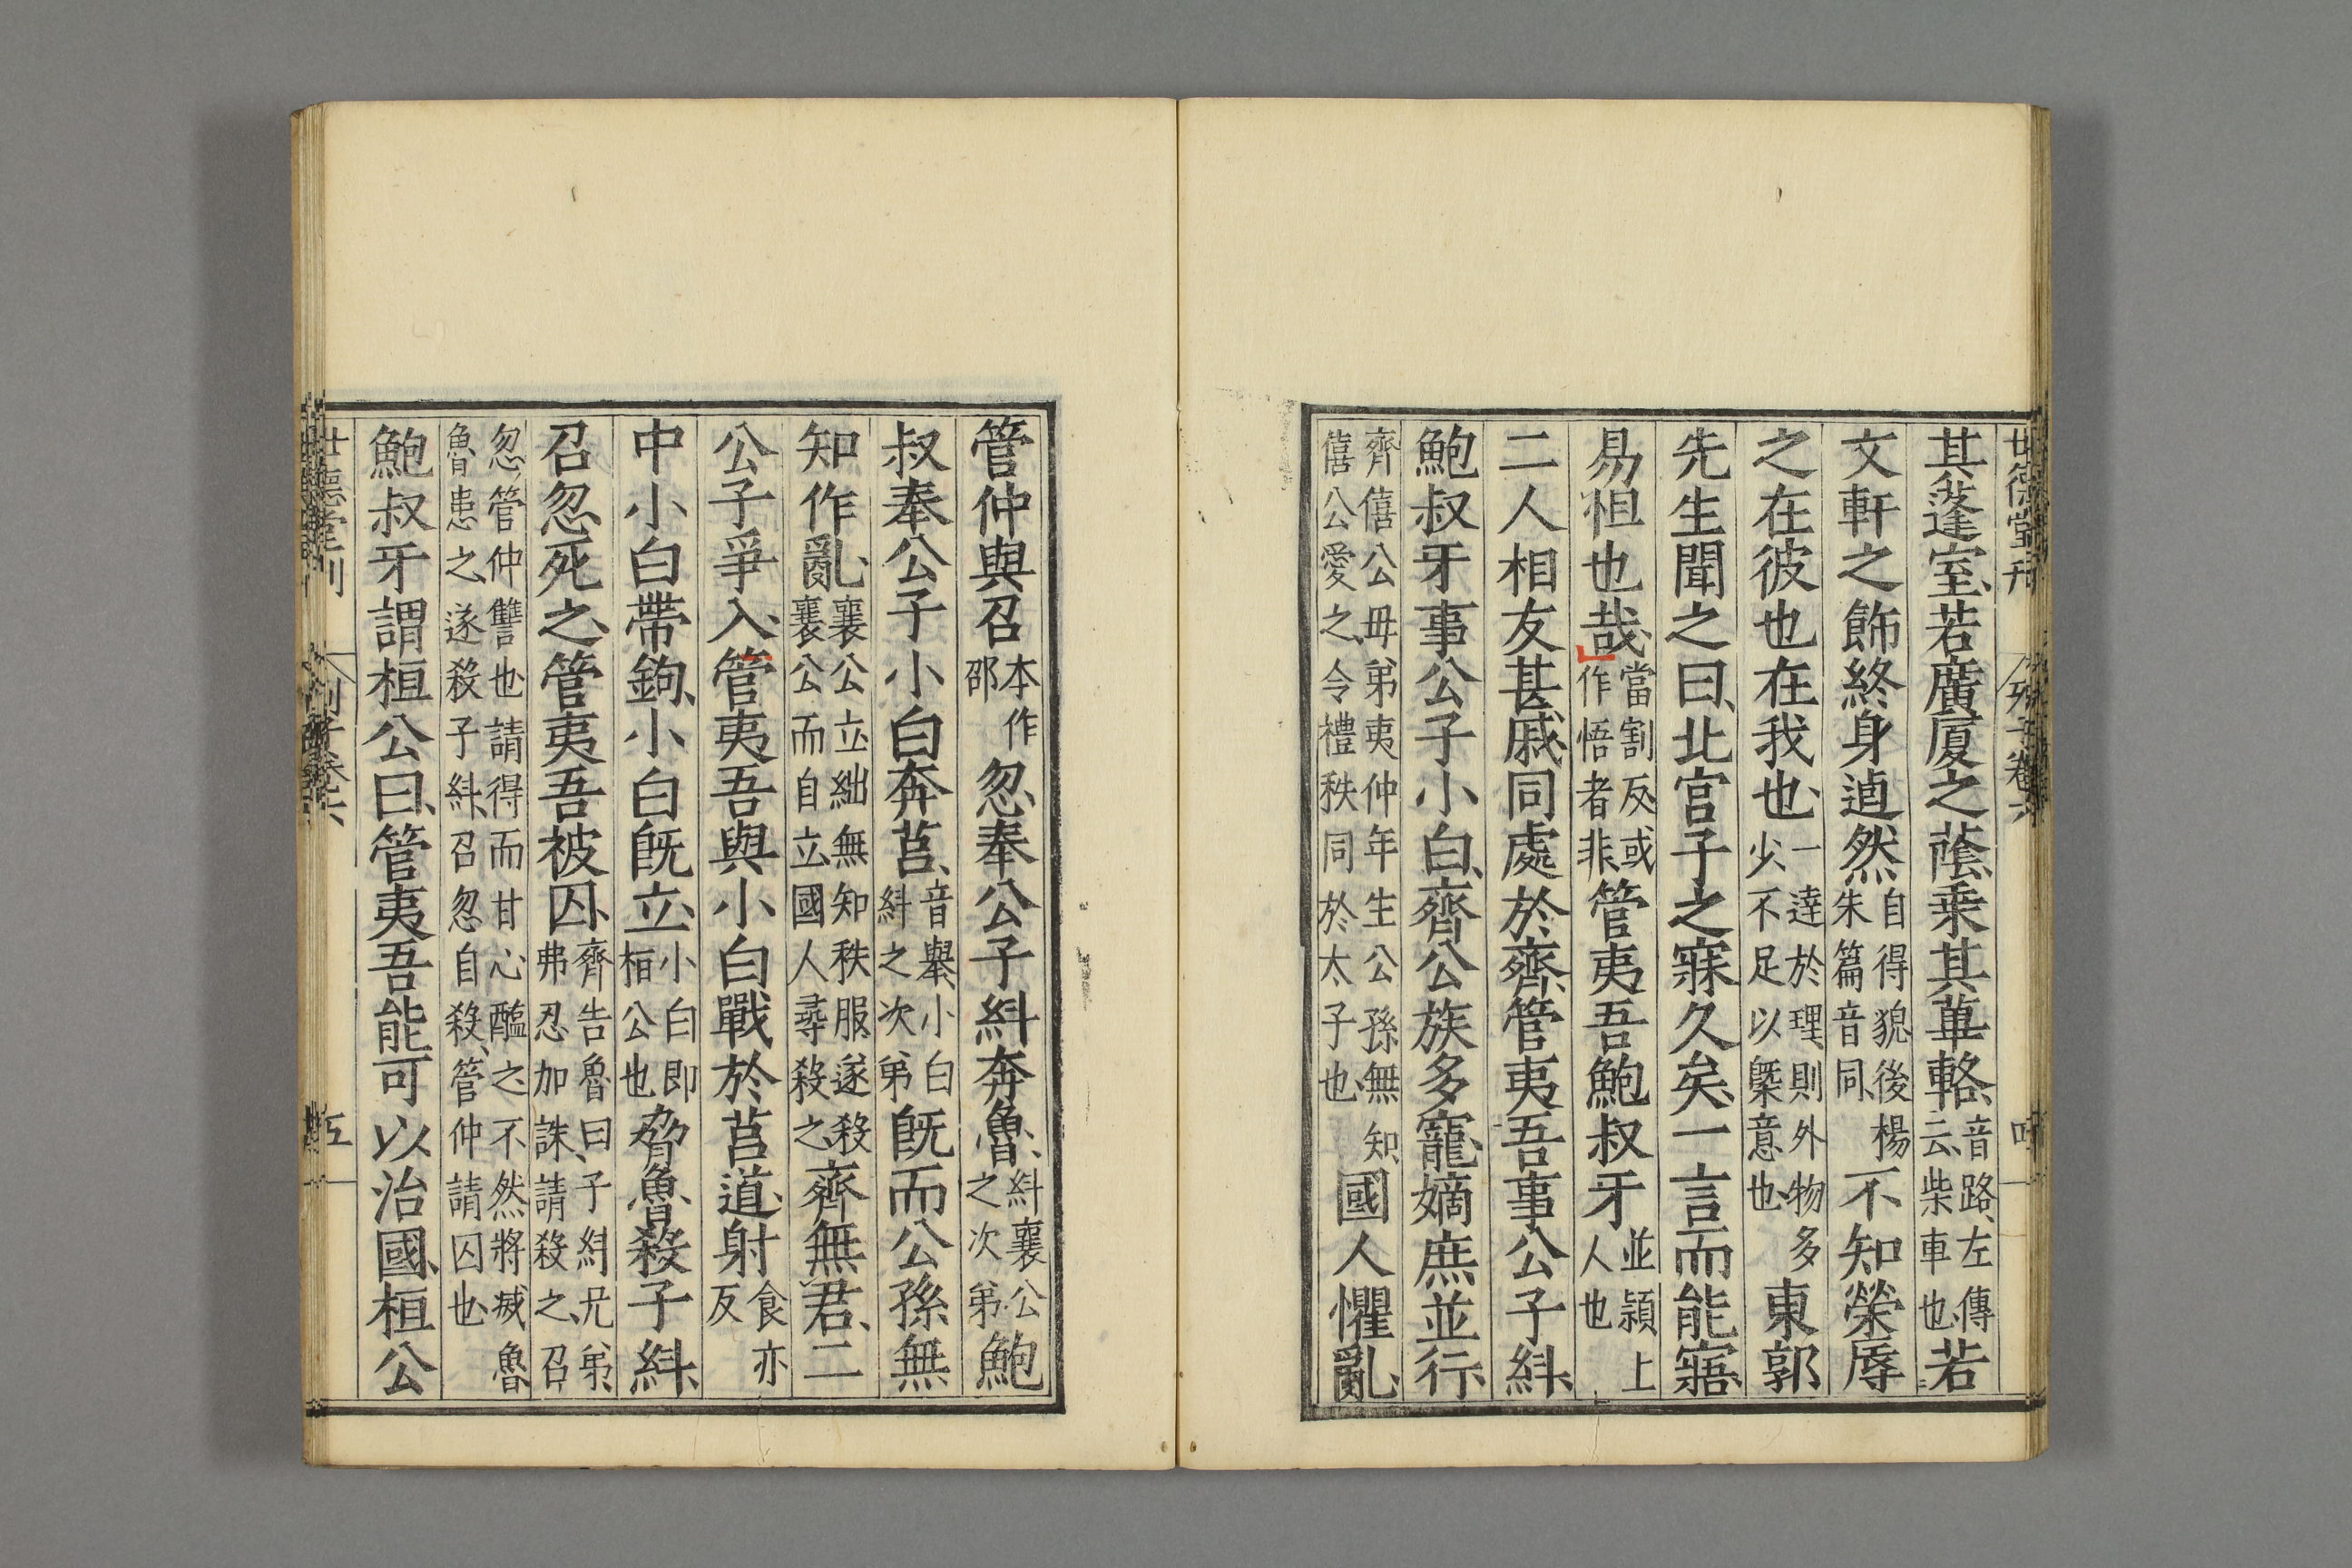 其蓬室、若廣厦之蔭、乗其蓽輅、音路、左傳云、柴車也、若
文軒之飾、終身逌然、自得貌後楊朱篇音同、不知榮辱
之在彼也在我也、一達於理、則外物多少、不足以槩意也、東郭
先生聞之曰、北宮子之寐久矣、一言而能寤、
易怛也哉、當割反或作悟者非、管夷吾鮑叔牙並潁上人也
二人相友甚戚、同處於齊、管夷吾事公子紏、
鮑叔牙事公子小白、齊公族多寵、嫡庶並行、
齊僖公毋弟夷仲年生公孫無知、僖公愛之、令禮秩同於太子也、國人懼亂、
管仲與召本作邵忽、奉公子紏奔魯、紏襄公之次弟鮑
叔奉公子小白奔莒、音舉、小白紏之次弟既而公孫無
知作亂、襄公立絀無知秩服、遂殺襄公而自立、國人尋殺之、齊無君、二
公子爭入、管夷吾與小白戰於莒道、射食亦反
中小白帶鉤、小白既立、小白即桓公也脅魯殺子紏、
召忽死之、管夷吾被囚、齊告魯曰、子紏兄弟、弗忍加誅、請殺之、召
忽、管仲讐也、請得而甘心醢之、不然將滅魯、魯患之、遂殺子紏、召忽自殺、管仲請囚也、
鮑叔牙謂桓公曰、管夷吾能可以治國、桓公
世德堂刊
列子卷六
五